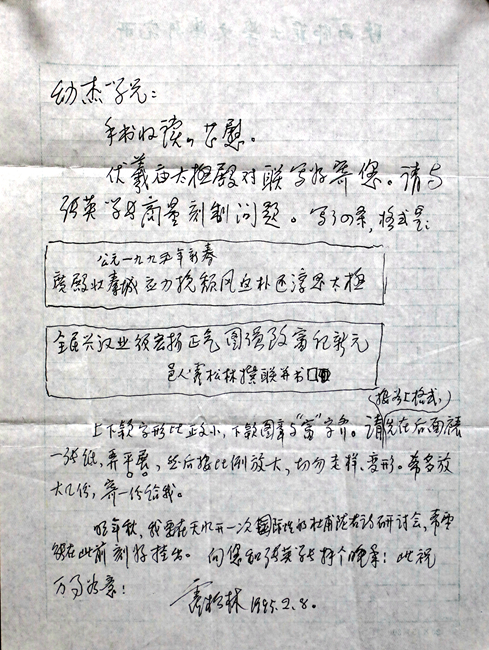 幼杰学兄：
手书收读，甚慰。
伏羲庙太极殿对联写好寄您。请与
张英学长商量刻制问题。写了四条，格式是：
公元一九九五年新春
广殿壮秦城应力挽颓风返朴还淳思太极
全民兴汉业须宏扬正气图强致富纪新元
邑人霍松林撰联并书
（按以上格式）
上下款字形比正文小，下款图章与“富”字齐。请先在后面裱
一张纸，弄平展，然后按比例放大，切勿走样、变形。希多放
大几份，寄一份给我。
明年秋，我要在天水开一次国际性的杜甫陇右诗研讨会，希望
能在此前刻好挂出。向您和张英学长拜个晚年！此祝
万事如意！
霍松林 1995.2.8.